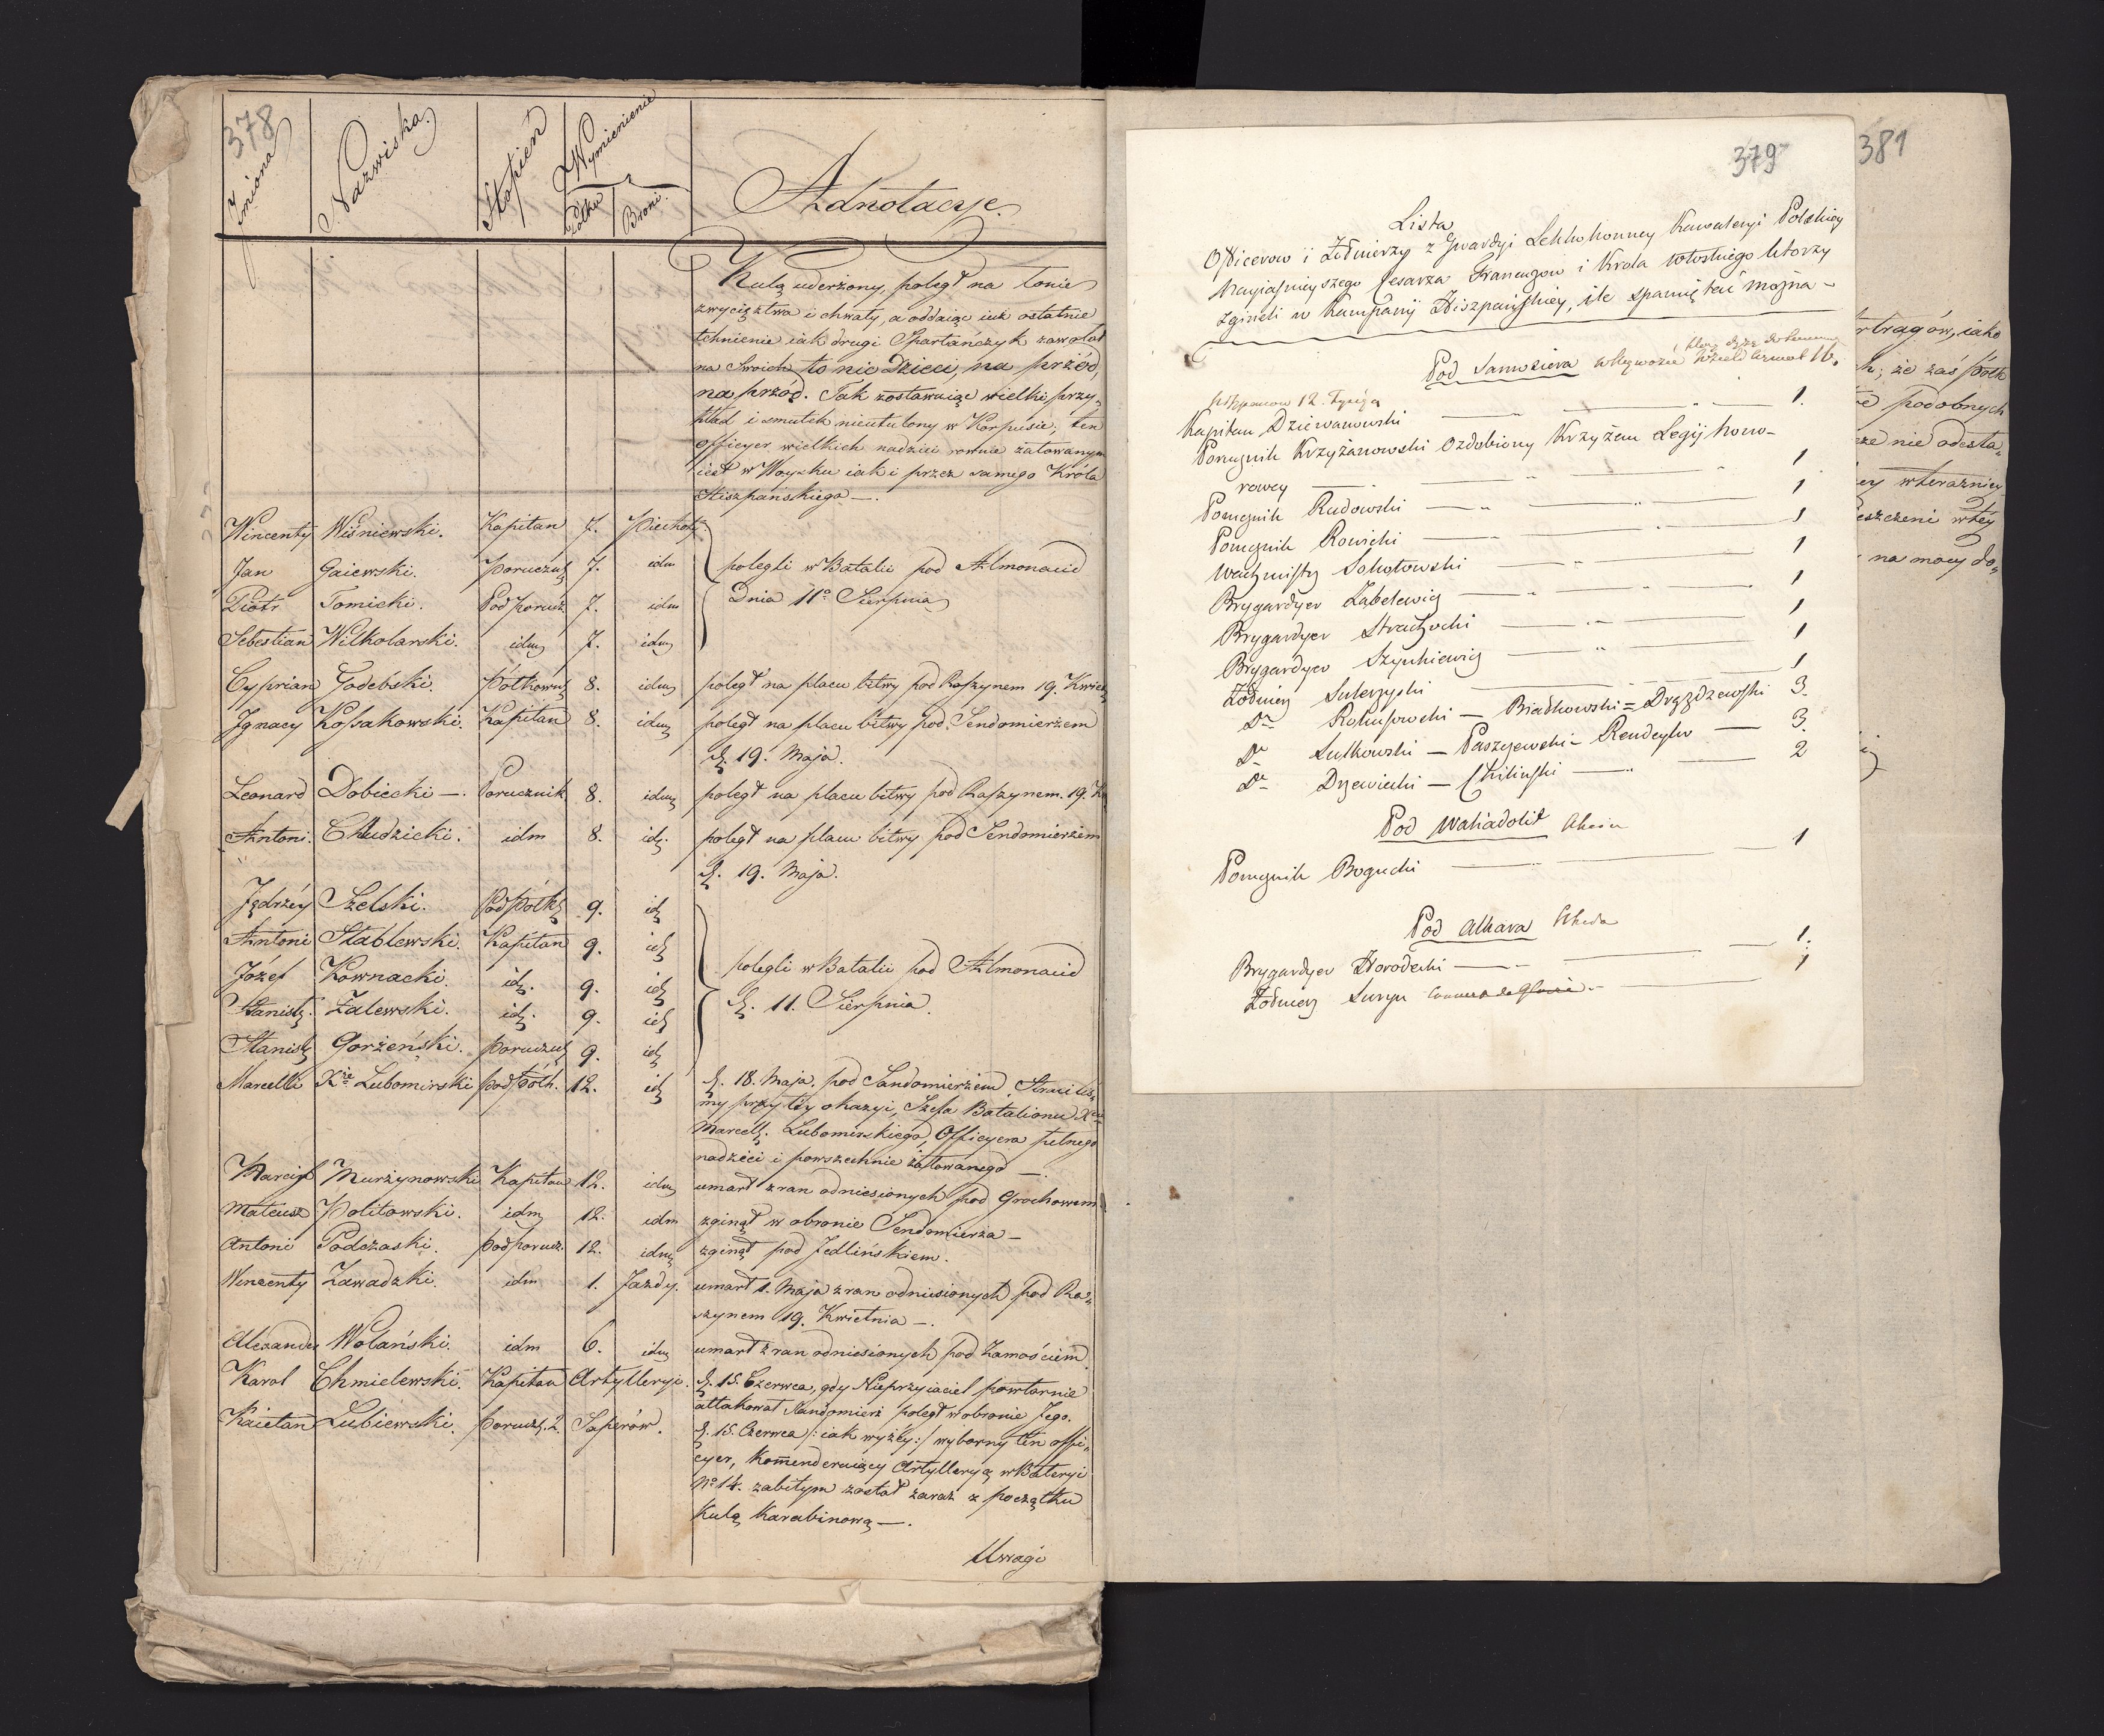 378
Imiona
Nazwiska.
Stopień
Wymienienie
Półku
Broni.
Adnotacye.
Kulą uderzony, poległ na łonie
zwycięztwa i chwały, a oddaiąc iuż ostatnie
tchnienie iak drugi Spartańczyk zawołał
na Swoich to nic Dzieci, na przód,
na przód. Tak zostawuiąc wielki przy„
kład i smutek nieutulony w Korpusie; ten
officyer wielkich nadziei rownie żałowanym
iest w Woysku iak i przez samego Króla
Hiszpańskiego —.
Wincenty Wiśniewski. Kapitan 7. Piechoty.
Jan Gaiewski. Porucz 7. idm
Piotr Tomicki. Podporucz. 7. idm
Sebestian Wilkolarski. idm 7. idm
polegli w Batalii pod Almonacid
Dnia 11o Sierpnia
Cyprian Godebski. Półkown 8. idm poległ na placu bitwy pod Raszynem 19. Kwiet
Ignacy Kossakowski. Kapitan 8. idm poległ na placu bitwy pod Sendomierzem
d. 19. Maja.
Leonard Dobiecki —. Porucznik 8. idm poległ na placu bitwy pod Raszynem. 19. K
Antoni. Chudzicki. idm 8. id. poległ na placu bitwy pod Sendomierzem
d. 19. Maja.
Jędrzéy Szelski. Podpółk 9. id
Antoni Stablewski. Kapitan 9. id
Józef Kownacki. id. 9. id
Stanisł. Zalewski. id. 9. id
Stanisł Gorżeński. Porucz 9. id
polegli w Batalii pod Almonacid
d. 11. Sierpnia.
Marcelli Xże Lubomirski podpółk. 12. id d. 18. Maja. pod Sandomierzem, Straciliś„
my przy téy okazyi, Szefa Batalionu Xcia
Marcell. Lubomirskiego, Officyera pełnego
nadzieci i powszechnie żałowanego —.
Marcin Murzynowski Kapitan 12. idm umarł z ran odniesionych pod Grochowem
Mateusz Politowski. idm 12. idm zginął w obronie Sendomierza —
Antoni Podczaski. podporucz. 12. idm zginął pod Jedlińskiem.
Wincenty Zawadzki. idm 1. Jazdy. umarł 1. Maja z ran odniesionych pod Ra„
szynem 19. Kwietnia —.
Alexander Wolański. idm 6. idm umarł z ran odniesionych pod Zamościem.
Karol Chmielewski. Kapitan Artylleryi. d. 15. Czerwca, gdy Nieprzyiaciel powtornie
attakował Sandomierz poległ w obronie Jego.
Kaietan Lubiewski. porucz. 2. Saperów. d. 15. Czerwca /: iak wyżéy :/ wyborny ten offi„
cyer, komenderuiący Artylleryą w Bateryi
No 14. zabitym został zaraz z początku
kulą karabinową —.
Uwagi
379
Lista
Officerow i Żołnierzy z Gwardyi Lekkokonney Kawaleryi Polskiey
Nayiaśnieyszego Cesarza Francuzow i Krola Włoskiego ktorzy
zgineli w Kampanij Hiszpańskiey, ile spamiętać można —
Pod Samosiera w Wąwozie
Kapitan Dziewanowski — 1.
Porucznik Krzyżanowski Ozdobiony Krzyżem Legij hono-
rowey — 1
Porucznik Rudowski — 1
Porucznik Rowicki — 1
Wachmistrz Sokołowski — 1
Brygardyer Zabelewicz — 1
Brygardyer Strachocki — 1
Brygardyer Szynkiewicz — 1
Żołnierz Sulerzyski — 1
Do Rokussowski — Biadkowski = Drązdzewski 3.
Do Lutkowski — Paszyewski — Rendeyko — 3.
Do Drzewiecki — Chiliński — 2
Pod Waliadolit
Porucznik Bogucki — 1
Pod Alkava
Brygardyer Horodecki — 1.
Żołnierz Suryn — 1
381
rbagów, iako
h; że zaś Półk
podobnych
że nie odesła„
ey wteraznie
eszczeni wtéy
na mocy do„